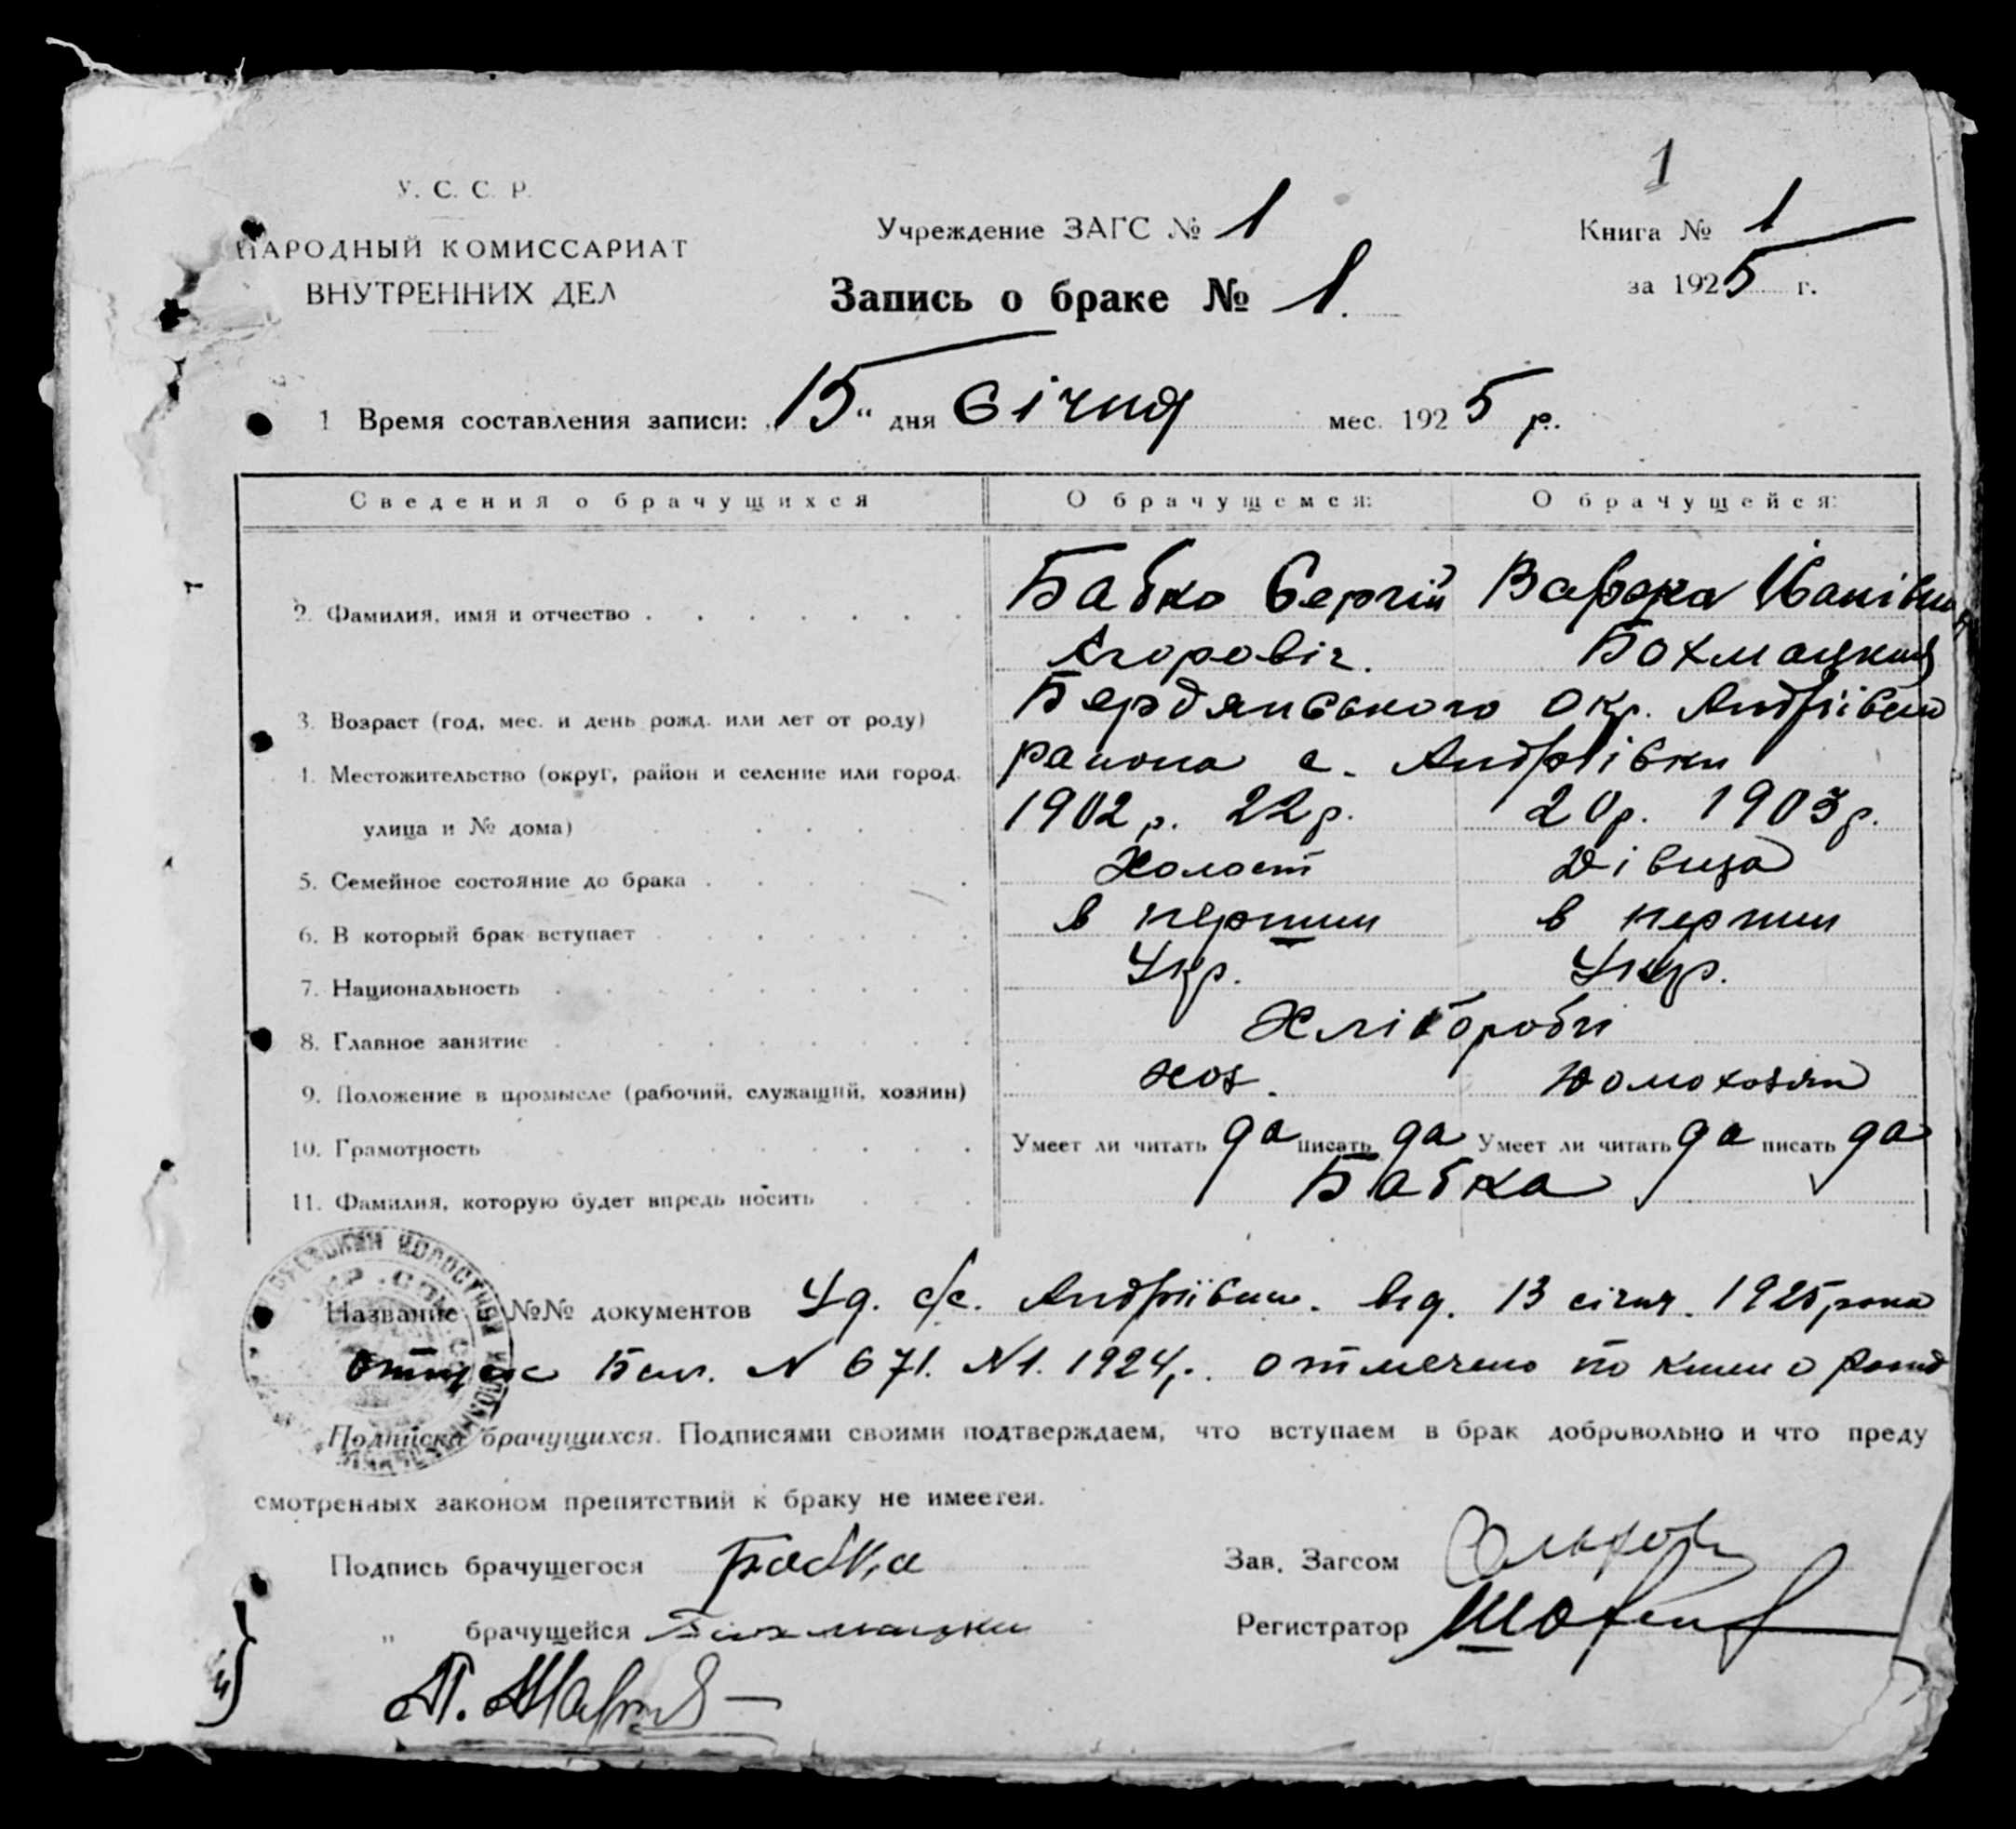 1
У. С. С. Р.
НАРОДНЫЙ КОМИССАРИАТ
ВНУТРЕННИХ ДЕЛ
Учреждение ЗАГС № 1
Запись о браке № 1.
Книга № 1
за 1925 г.
1 Время составления записи: „15“ дня Січня мес. 1925 р.
Сведения о брачущихся О брачущемся: О брачущейся:
2. Фамилия, имя и отчество Бабко Сергій Варвара Іванівна
Бохмацкая
3. Возраст (год, мес. и день рожд. или лет от роду) Бердянського окр. Андріївсько
4. Местожительство (округ, район и селение или город, района с. Андріївки
улица и № дома) 1902 р. 22 р. 20 р. 1903 р.
5. Семейное состояние до брака Холост Дівиця
6. В который брак вступает в перший в перший
7. Национальность Укр. Укр.
8. Главное занятие Хліборобы
9. Положение в промысле (рабочий, служащий, хозяин) хоз. домохозяй
10. Грамотность Умеет ли читать да писать да Умеет ли читать да писать да
11. Фамилия, которую будет впредь носить Бабка
Название и №№ документов Уд. с/с. Андріївськ. від. 13 січня. 1925 рока
N 671. N 1. 1924 р. отмечено по книги о
Подписка брачущихся. Подписями своими подтверждаем, что вступаем в брак добровольно и что преду
смотренных законом препятствий к браку не имеется.
Подпись брачущегося Бабка
Зав. Загсом
„ брачущейся Бохмацки
Регистратор